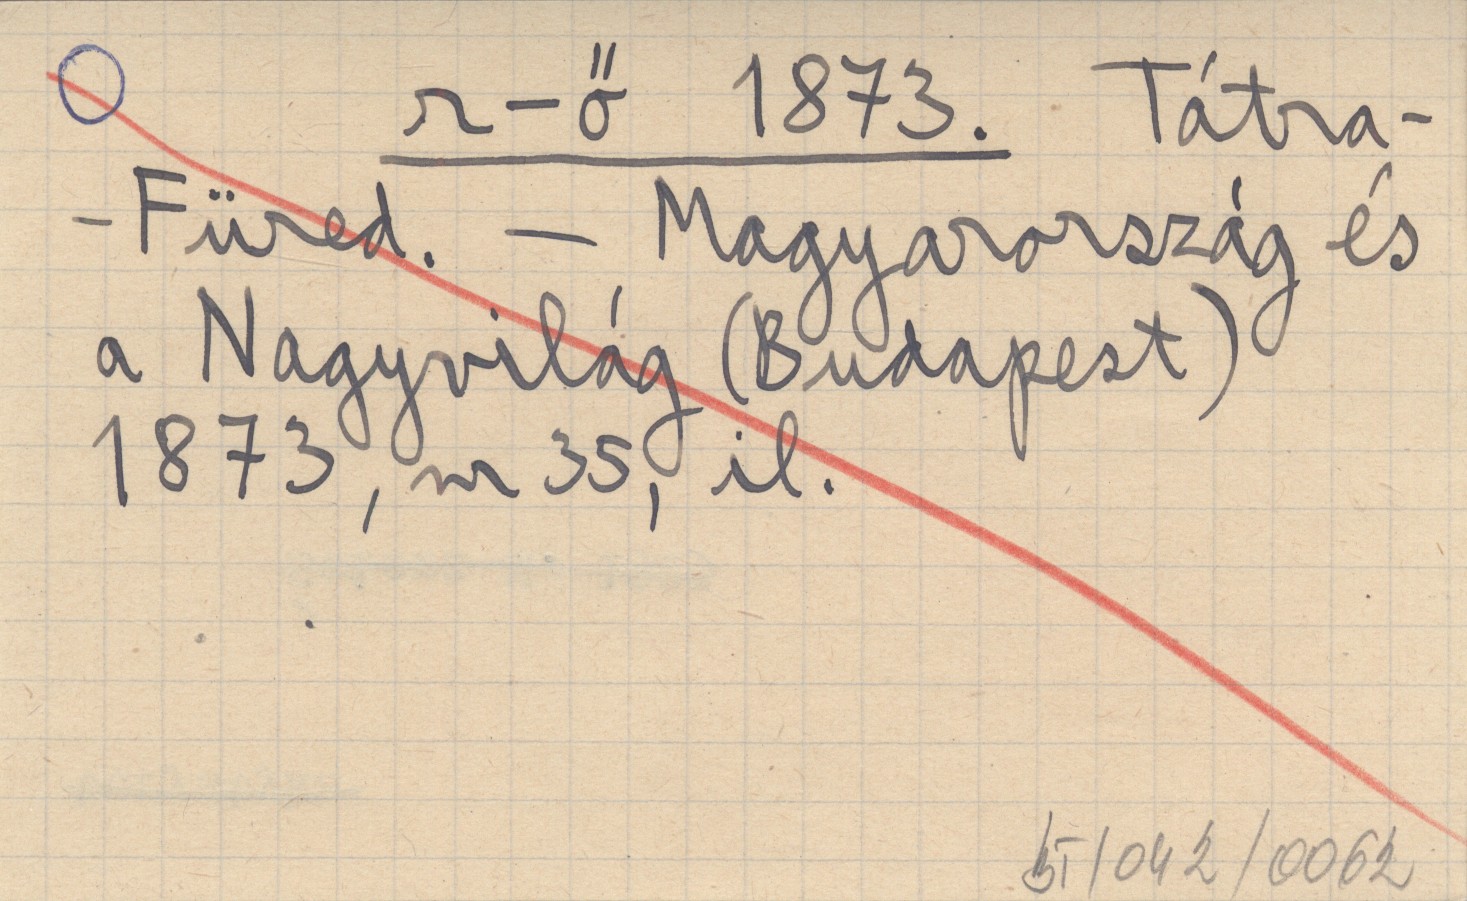 r-ő 1873. Tátra-
-Füred. — Magyarország és
a Nagyvilág (Budapest)
1873, nr 35, il.
BT/042/0062